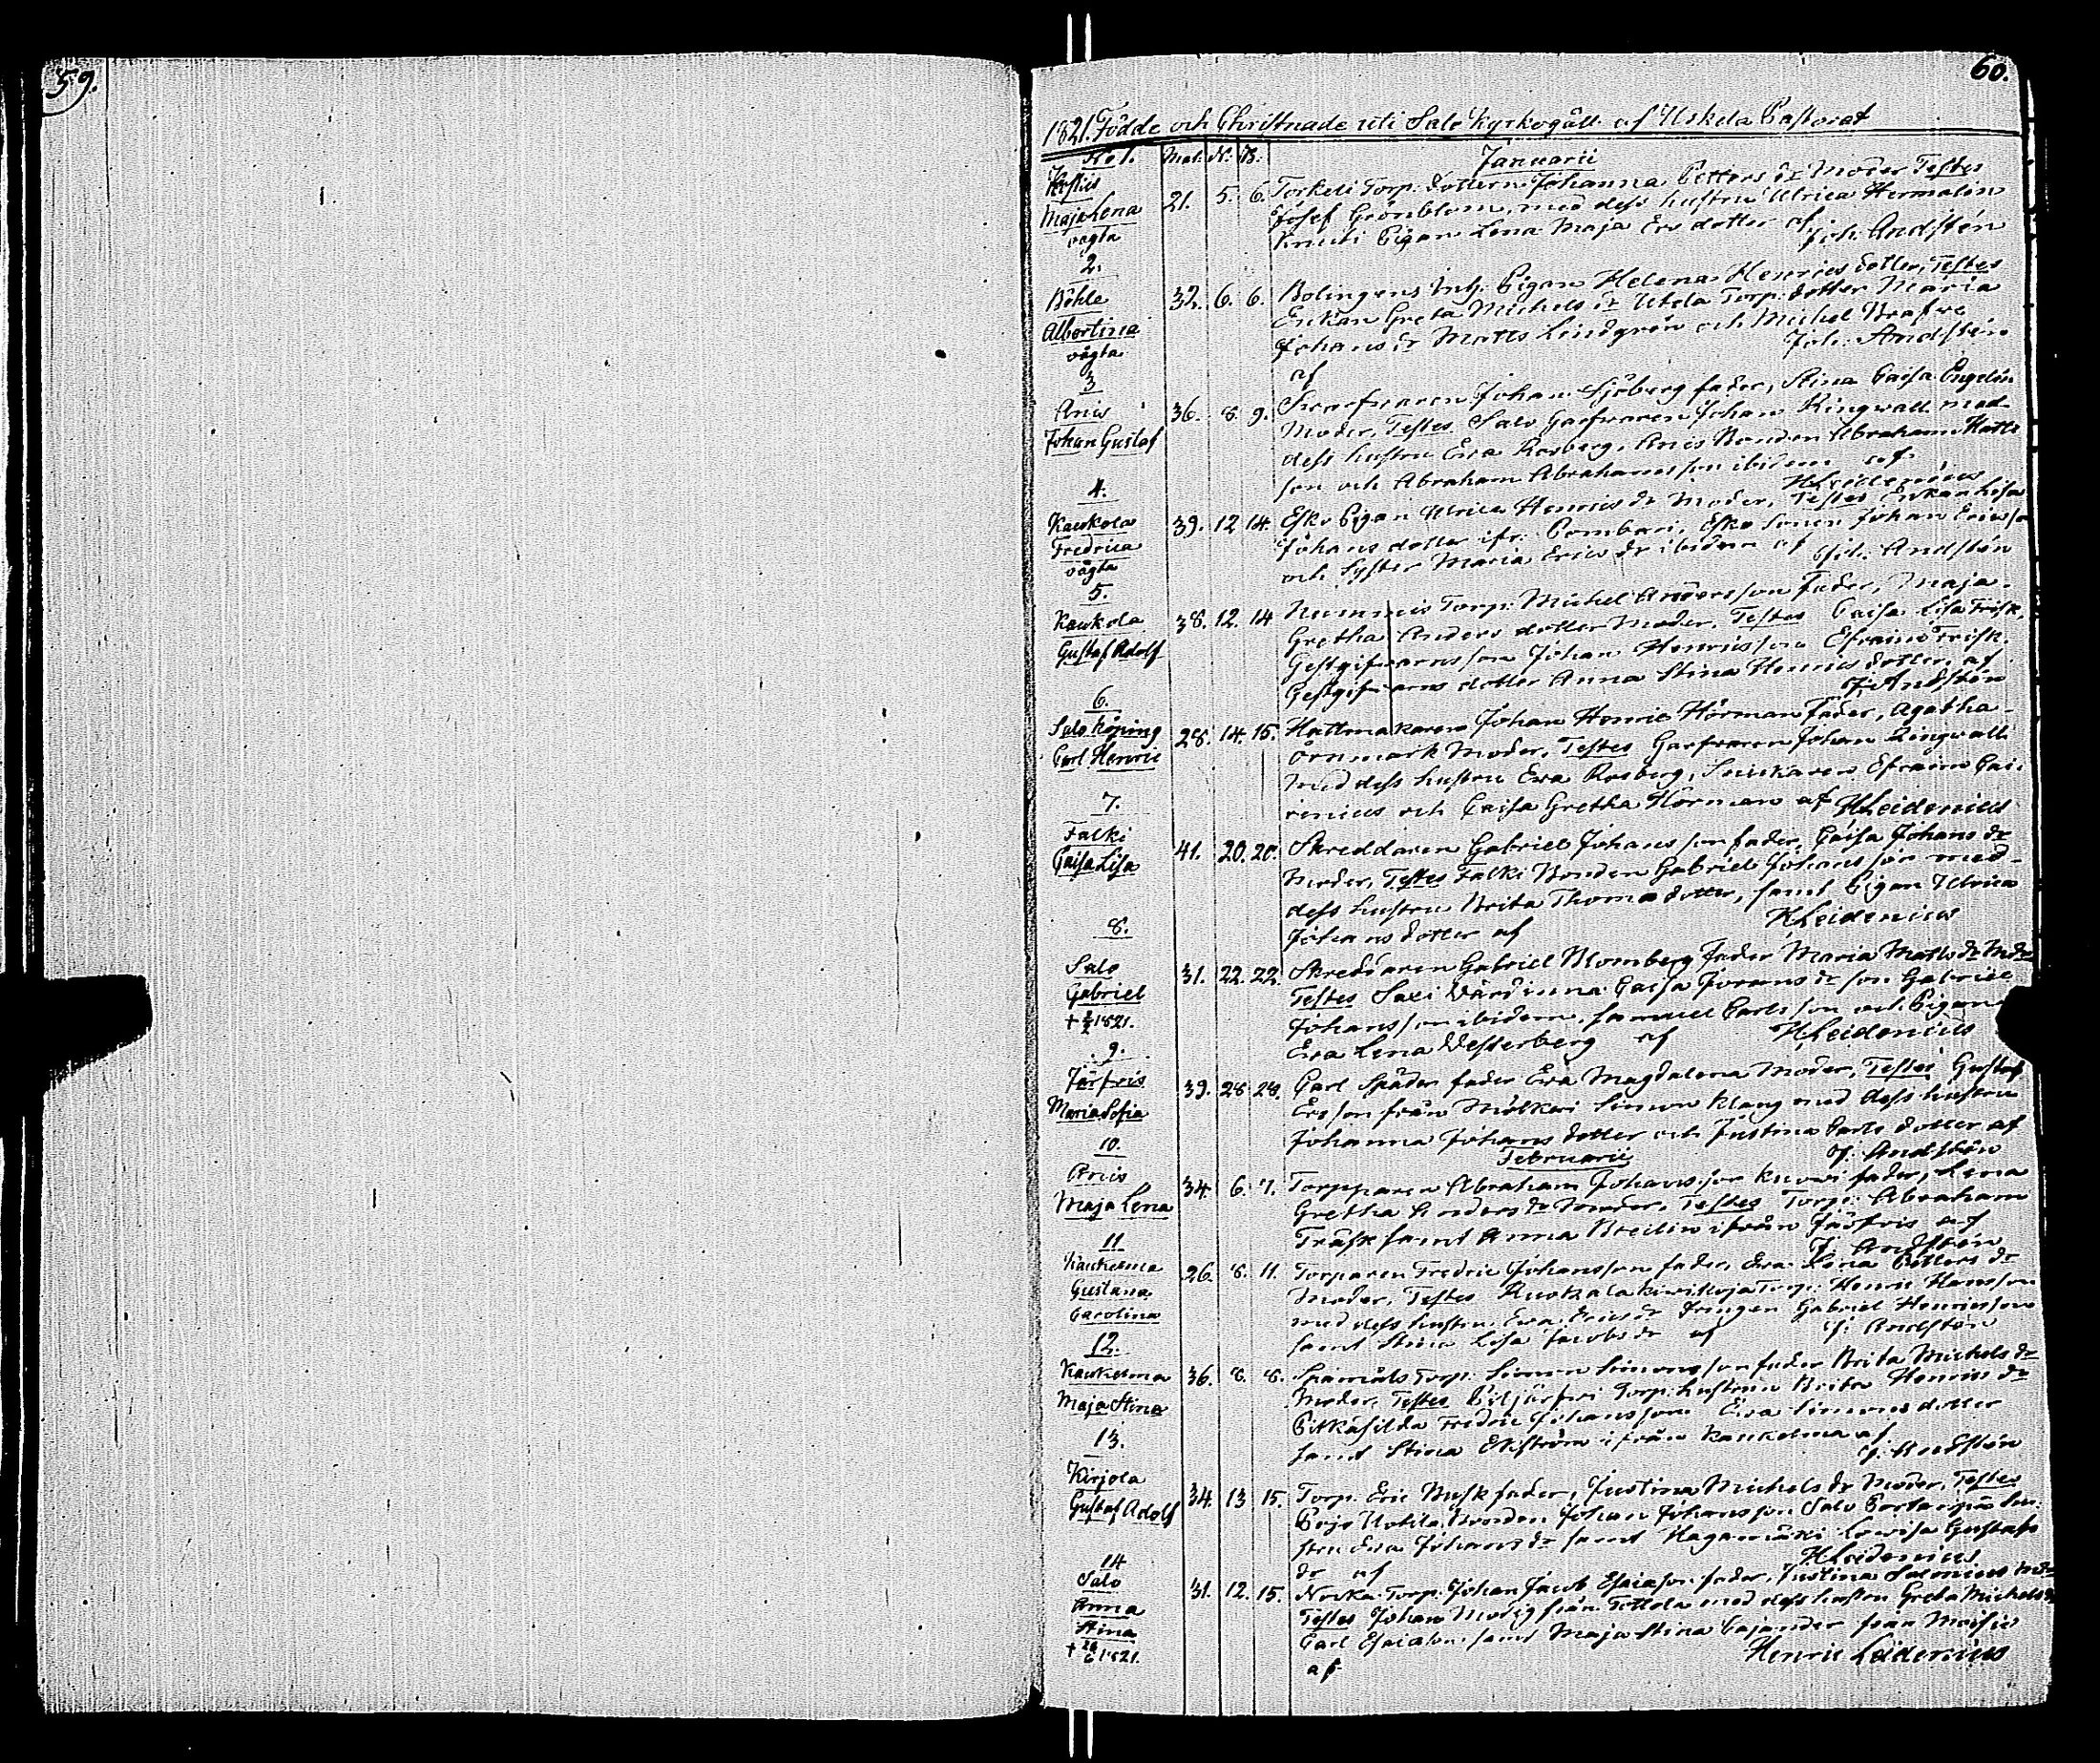 59.
60.
1821. Födde och Christnade uti Salo Kyrkogäll af Uskela Pastorat
No 1. Mat. N. B. Januarii
Maja Lena 21. 5. 6. Torkeli Torp. dottern Johanna Petters dr Moder Testes
vägta Josef Grönblom, med dess hustru Ulrica Hermalin
Pigan Lena Maja Ers dotter af Joh. Andstén
2.
Böhle 32. 6. 6. Bolingens Inh. Pigan Helena Henrics dotter, Testes
Albertina Enkan Greta Michels dr Utela Torp. dotter Maria
vägta Johans dr Matts Lindgrén och Michel Brafve
af Joh. Andstén
3
Anis 36. 8. 9. Johan Sjöberg fader, Stina Caisa Engelin
Johan Gustaf Moder, Testes Salo Garfvaren Johan Ringwall med
dess hustru Eva Rosberg, Anis Bonden Abraham Matts
son och Abraham Abrahamsson ibidem af
HLeidenius
4.
Kaukola 39. 12 14. Esko Pigan Ulrica Henrics dr Moder, Testes Enkan Lisa
Fredrica Johans dotter ifr. Pombari, Esko Sonen Johan Ericsson
vägta och Syster Maria Erics dr ibidem af Joh. Andstén
5.
Kaukola 38. 12. 14 Nummis Torp. Michel Andersson Fader, Maja
Gustaf Adolf Gretha Anders dotter Moder, Testes Caisa Lisa Frisk,
Gestgifvarns son Johan Henricsson Efraim Frisk.
Gestgifvarns dotter Anna Stina Henrics dotter af
J: Andstén
6.
Salo Köping 28. 14. 15. Hattmakaren Johan Henric Hörman Fader, Agatha
Carl Henric Örnmark Moder, Testes Garfvaren Johan Ringwall
med dess hustru Eva Rosberg, Snickaren Efraim Cai-
renius och Caisa Gretha Hörman af HLeidenius
7.
Falki 41. 20. 20. Skreddaren Gabriel Johansson fader, Caisa Johans dr
Caisa Lisa Moder, Testes Falki Bonden Gabriel Johansson med
dess hustru Brita Thomas dotter, samt Pigan Ulrica
Johans dotter af HLeidenius
8.
Salo 31. 22. 22. Skreddaren Gabriel Blomberg Fader Maria Matts dr Moder
Gabriel Testes Saxi Värdinna Caisa Jörans dr son Gabriel
+ 1821. Johansson ibidem, Samuel Carlsson och Pigan
Eva Lena Westerberg af HLeidenius
9.
Järfvis 39. 28 28. Carl Späder fader Eva Magdalena Moder, Testes Gustaf
Maria Sofia Ersson från Mölkeri Simon Klang med dess hustru
Johanna Johans dotter och Justina Carls dotter af
Februarii J: Andstén
10.
Aniis 34. 6. 7. Torpparen Abraham Johansson fader, Lena
Maja Lena Gretha Anders dr Moder, Testes Torp: Abraham
Träsk samt Anna Bredlin ifrån Järfvis af
J: Andstén
11
Kaukelma 26. 8. 11. Torparen Fredric Johansson fader, Eva Lena Petters dr
Gustava Moder, Testes Torp: Henric Hansson
Carolina med dess hustru Eva Erics dr Drengen Gabriel Henricsson
samt Stina Lisa Jacobs dr af J: Andstén
12.
Kaukelma 36. 8. 8. Torp. Simon Simonsson fader Brita Michels dr
Maja Stina Moder, Testes Torp. hustrun Brita Henrics dr
Fredric Johansson Eva Simons dotter
samt Stina Ekström ifrån Kaukelma af
J: Andstén
13.
Kirjola 34. 13 15. Torp. Eric Musk fader, Justina Michels dr Moder, Testes
Gustaf Adolf Bonden Johan Johansson Salo hu-
stru Eva Johans dr samt Hagamäki Lovisa Gustafs
dr af HLeidenius
14
Salo 31. 12. 15. Torp. Johan Jacob Esaiasson fader, Justina Salenius Moder
Anna Testes Johan Modig från Tottola med dess hustru Greta Michels dr
Stina Carl Esaiasson samt Maja Stina Cajander från Moisio
+ 1821. af Henric Leidenius